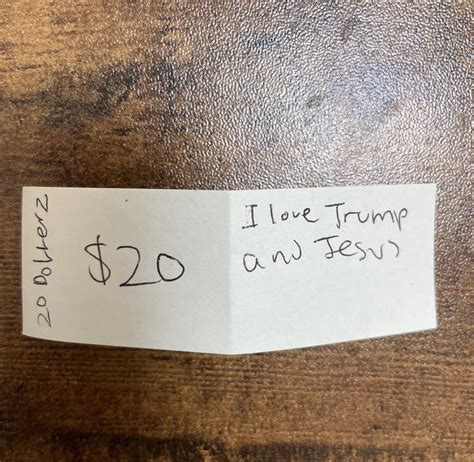 20 Dollerz
$20
I love Trump
and Jesus